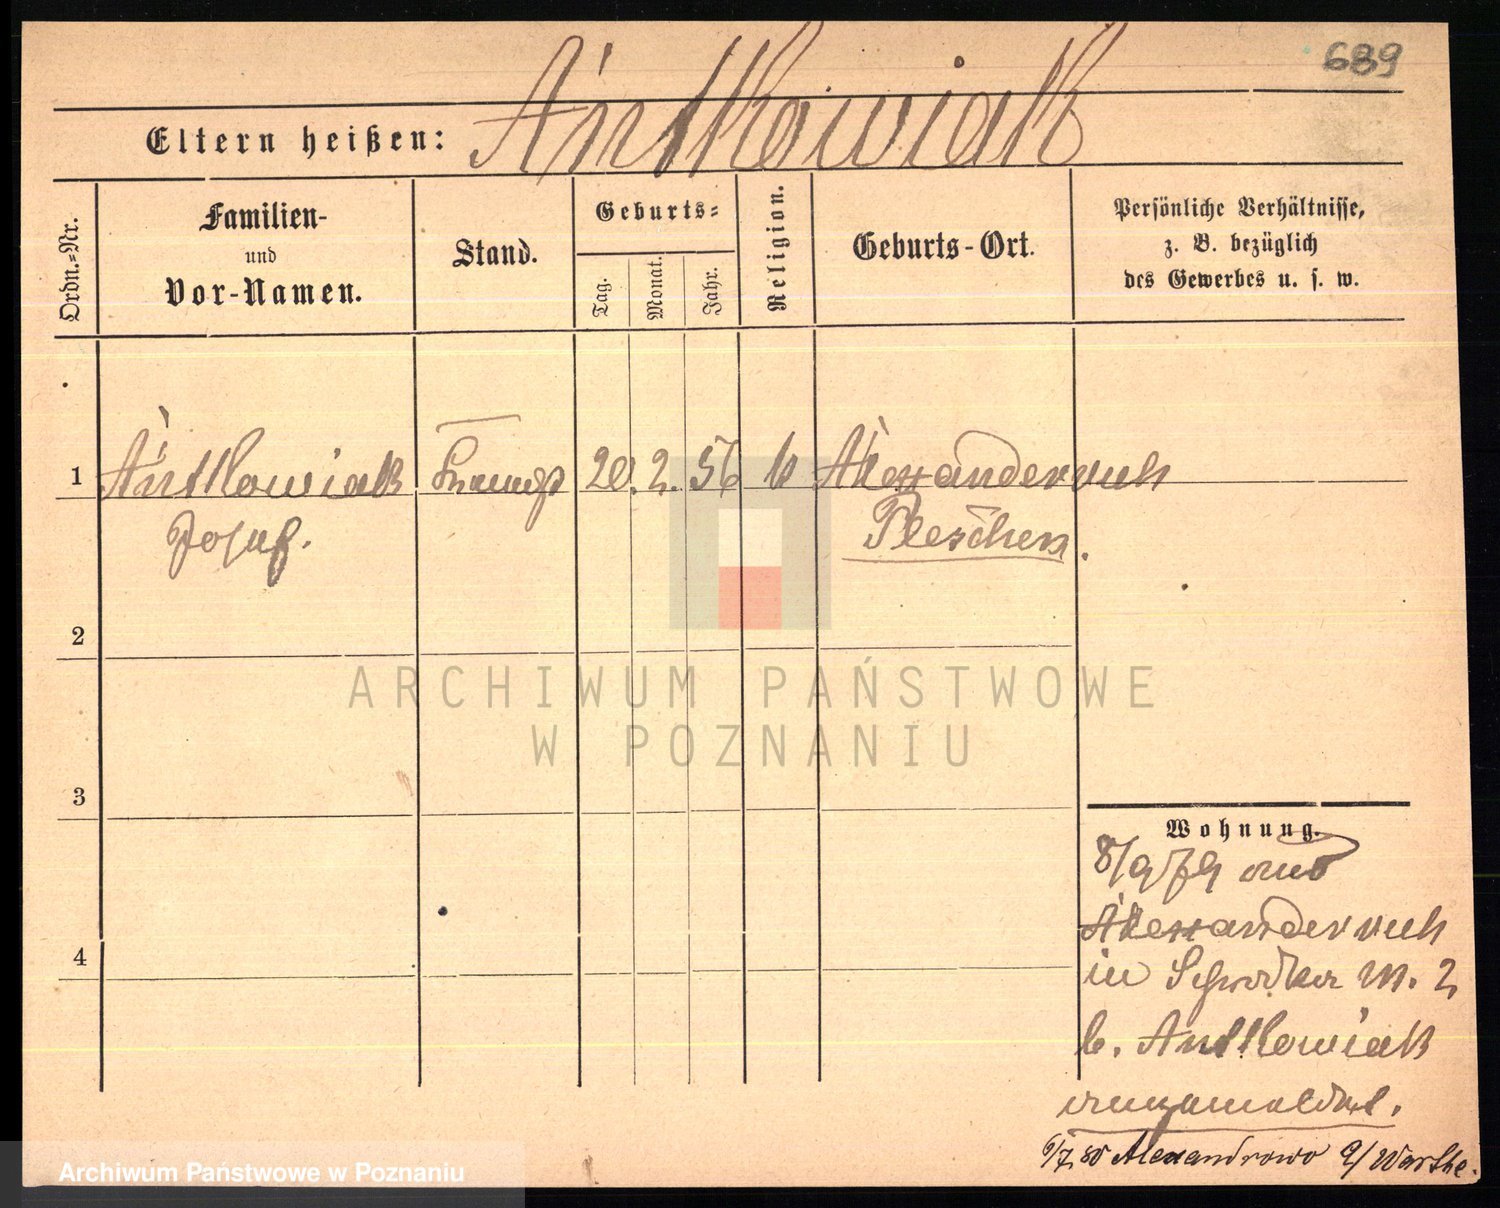 689
Antkowiak
Eltern heißen:
Ordn.-Nr.
Familien-
und
Vor-Namen.
Stand.
Geburts-
Tag.
Monat.
Jahr.
Religion.
Geburts-Ort.
Persönliche Verhältnisse,
z. B. bezüglich
des Gewerbes u. s. w.
1 Antkowiak 20. 2. 56 Alexanderruh
Josef. Pleschen.
2
3
4
Wohnung.
8/9 79 aus
Alexanderruh
in Schrodka No. 2
b. Antkowiak
angemeldet.
80 Alexandrowo a/ Warthe.
ARCHIWUM PAŃSTWOWE
W POZNANIU
Archiwum Państwowe w Poznaniu